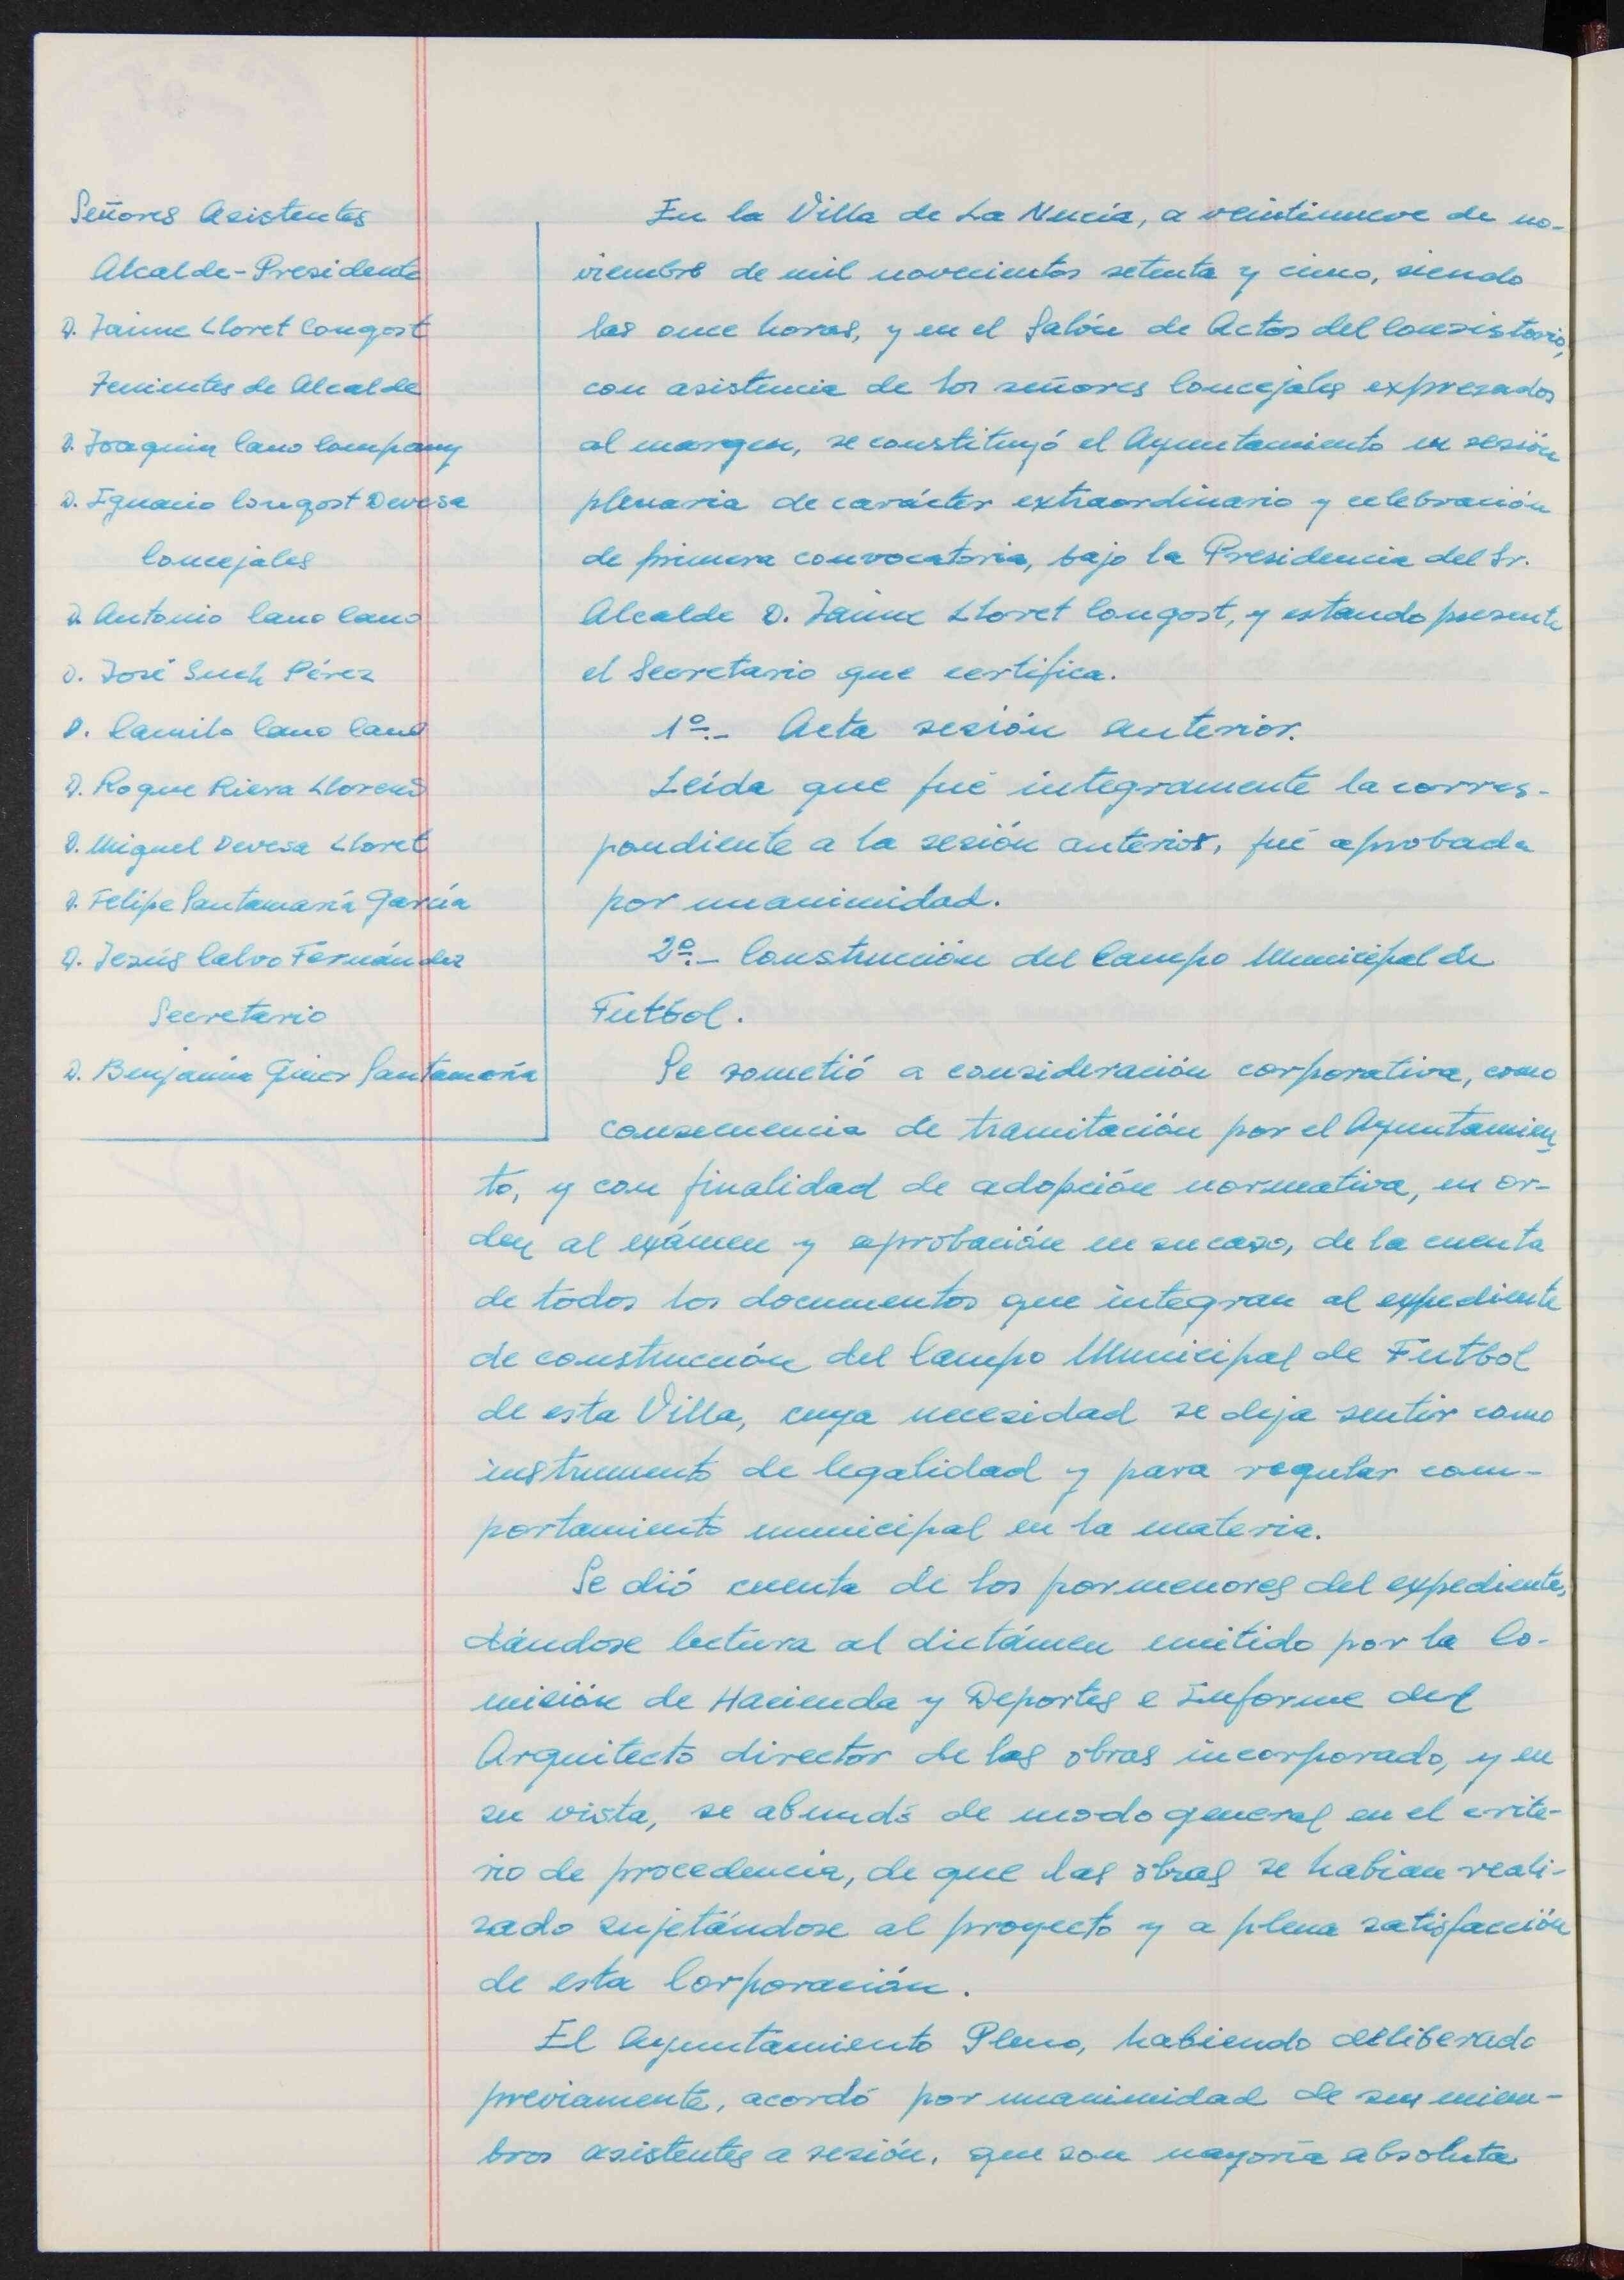 Señores Asistentes
Alcalde-Presidente
D. Jaime Lloret Congost
Tenientes de Alcalde
D. Joaquin Cano Company
D. Ignacio Congost Devesa
Concejales
D. Antonio Cano Cano
D. José Such Pérez
D. Camilo Cano Cano
D. Roque Riera Llorens
D. Miguel Devesa Lloret
D. Felipe Santamaría García
D. Jesús Calvo Fernández
Secretario
D. Benjamín Giner Santamaría
En la Villa de La Nucía, a veintinueve de no-
viembre de mil novecientos setenta y cinco, siendo
las once horas, y en el Salón de Actos del Consistorio,
con asistencia de los señores Concejales expresados
al margen, se constituyó el Ayuntamiento en sesión
plenaria de carácter extraordinario y celebración
de primera convocatoria, bajo la Presidencia del Sr.
Alcalde D. Jaime Lloret Congost, y estando presente
el Secretario que certifica.
1º.- Acta sesión anterior.
Leída que fué integramente la corres-
pondiente a la sesión anterior, fué aprobada
por unanimidad.
2º.- Construcción del Campo Municipal de
Futbol.
Se sometió a consideración corporativa, como
consecuencia de tramitación por el Ayuntamien
to, y con finalidad de adopción normativa, en or-
den al exámen y aprobación en su caso, de la cuenta
de todos los documentos que integran al expediente
de construcción del Campo Municipal de Futbol
de esta Villa, cuya necesidad se deja sentir como
instrumento de legalidad y para regular com-
portamiento municipal en la materia.
Se dió cuenta de los pormenores del expediente,
dándose lectura al dictámen emitido por la Co-
misión de Hacienda y Deportes e Informe del
Arquitecto director de las obras incorporado, y en
su vista, se abundó de modo general en el crite-
rio de procedencia, de que las obras se habian reali-
zado sujetándose al proyecto y a plena satisfacción
de esta Corporación.
El Ayuntamiento Pleno, habiendo deliberado
previamente, acordó por unanimidad de sus miem-
bros asistentes a sesión, que son mayoría absoluta